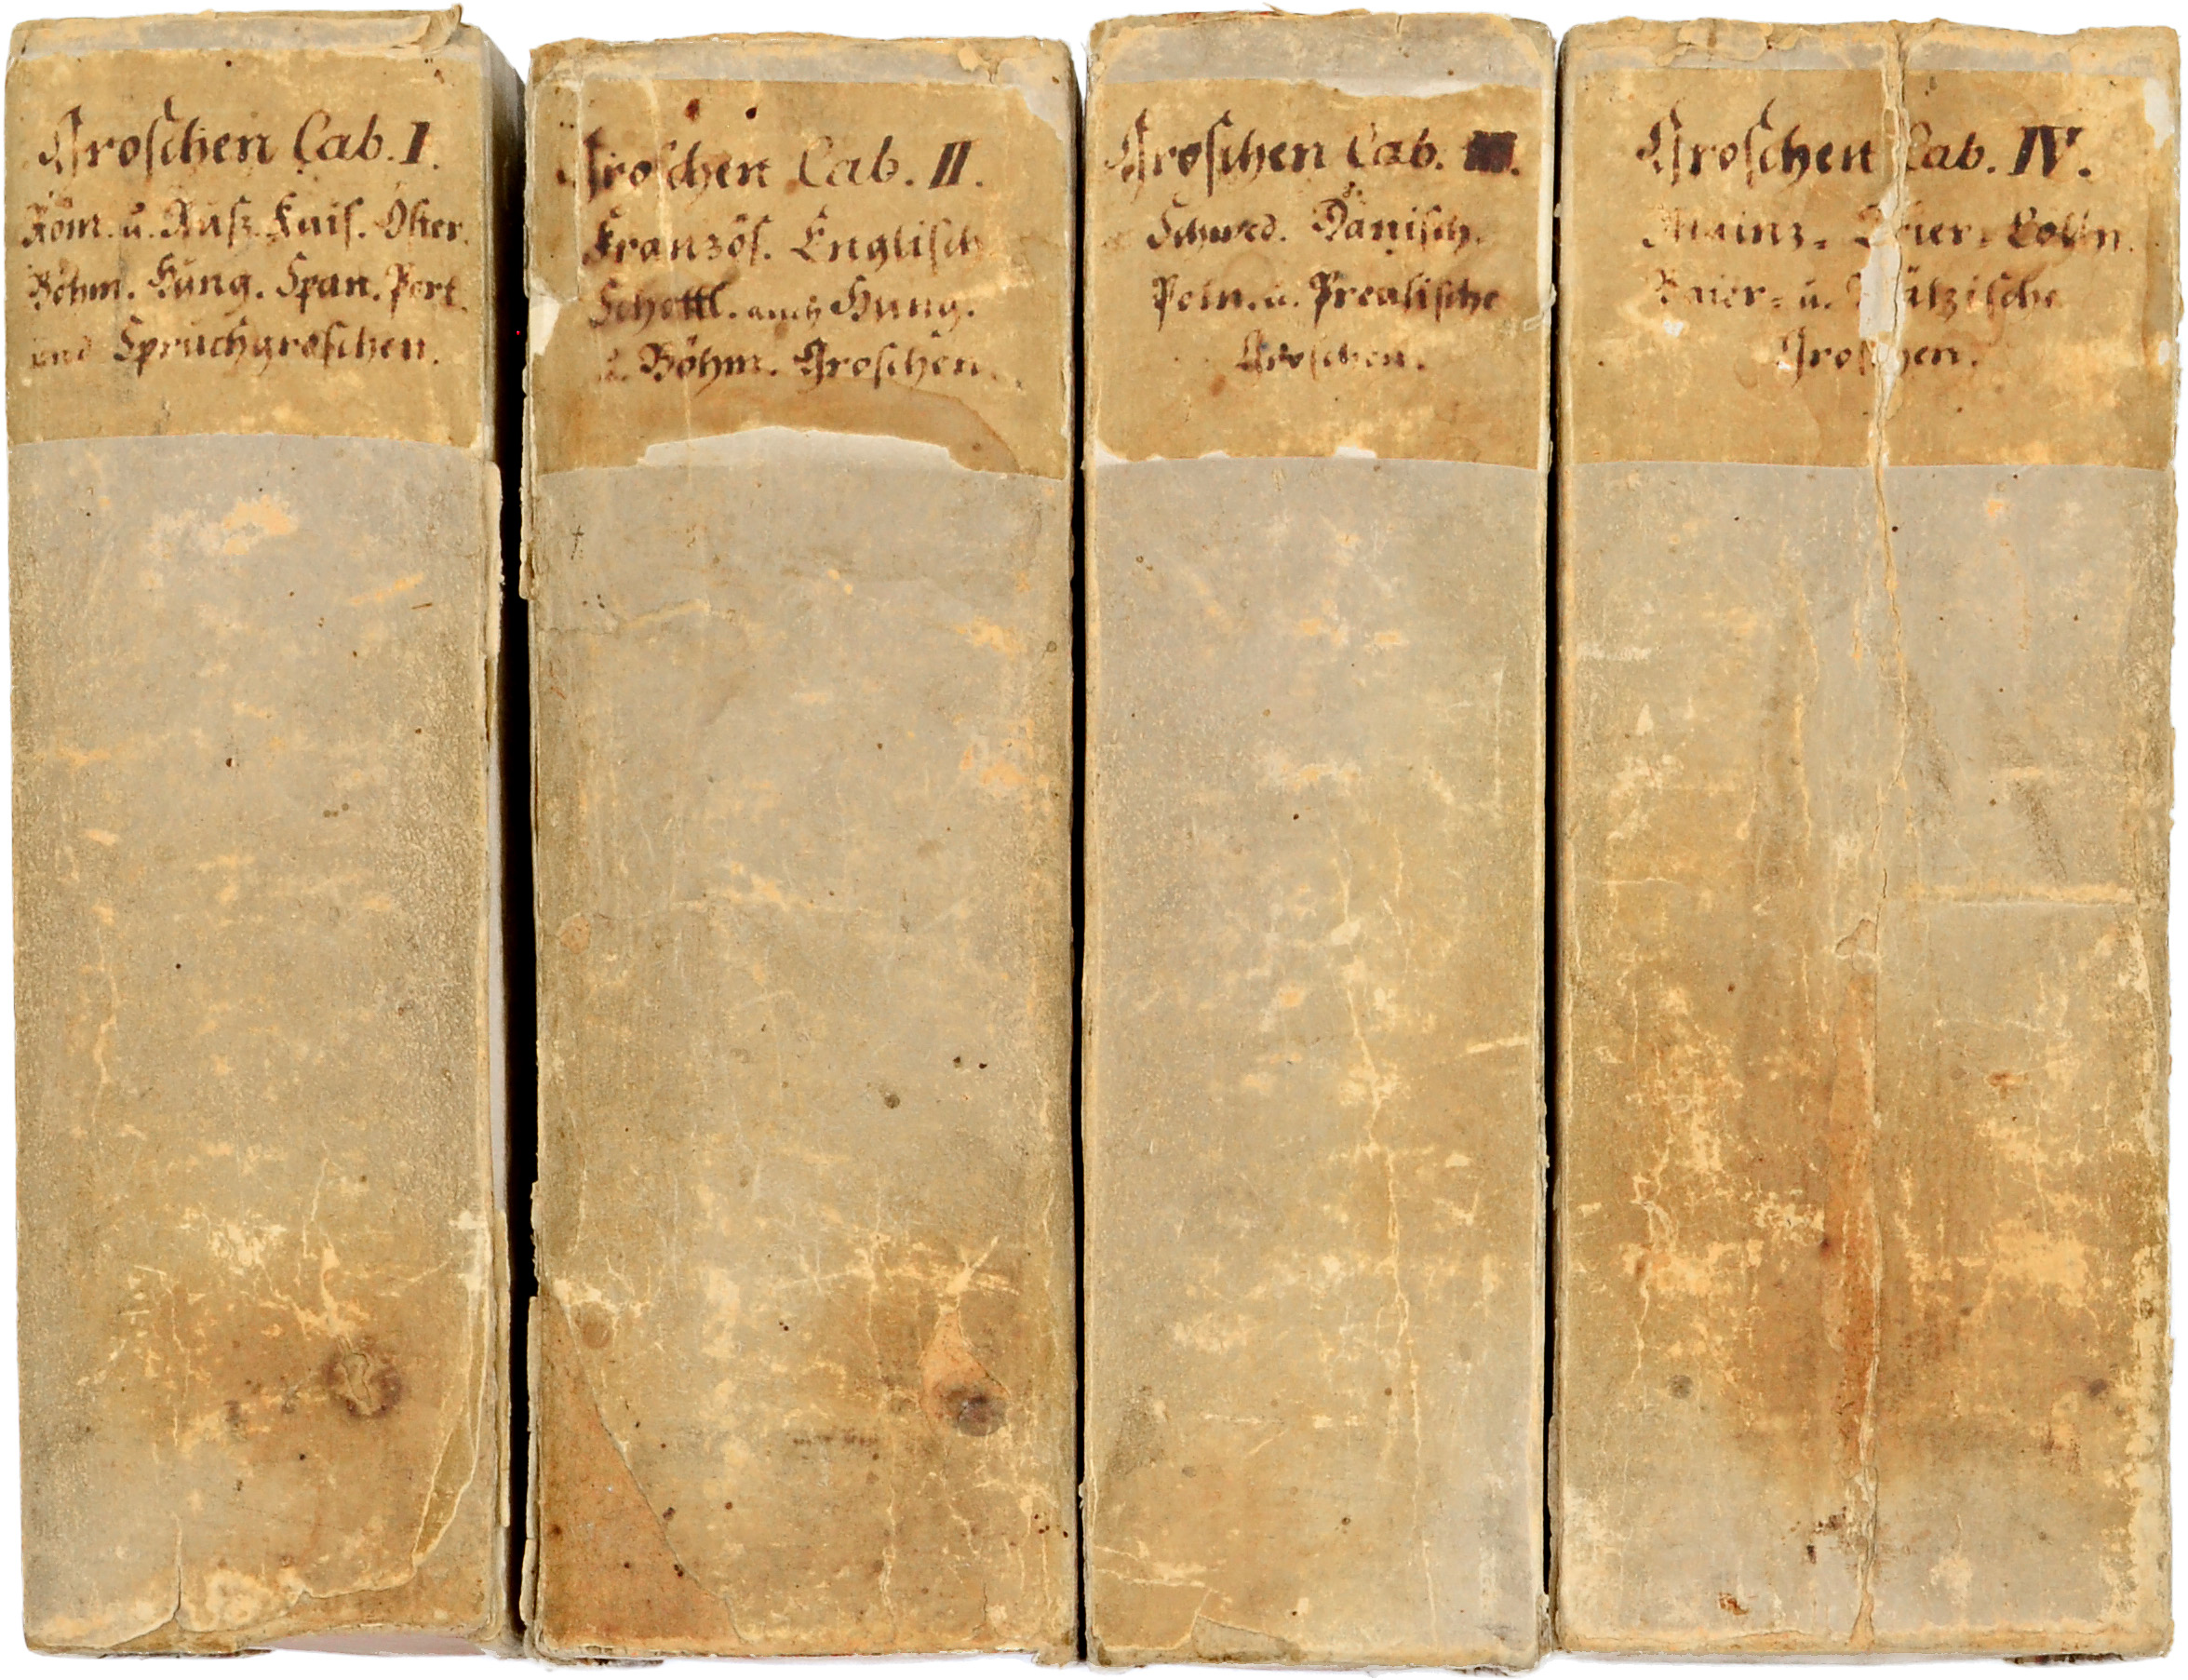 Groschen Cab. I.
Röm. u. Russ. Kais. Öster.
Böhm. Hung. Span. Port.
und Spruchgroschen.
Groschen Cab. II.
Französ. Englisch
Schottl. auch Hung.
u. Böhm. Groschen.
Groschen Cab. III.
Schwed. Dänisch.
Poln. u. Preusische
Groschen.
Groschen Cab. IV.
Mainz- Trier- Colln.
Baier- u. Pfälzische
Groschen.